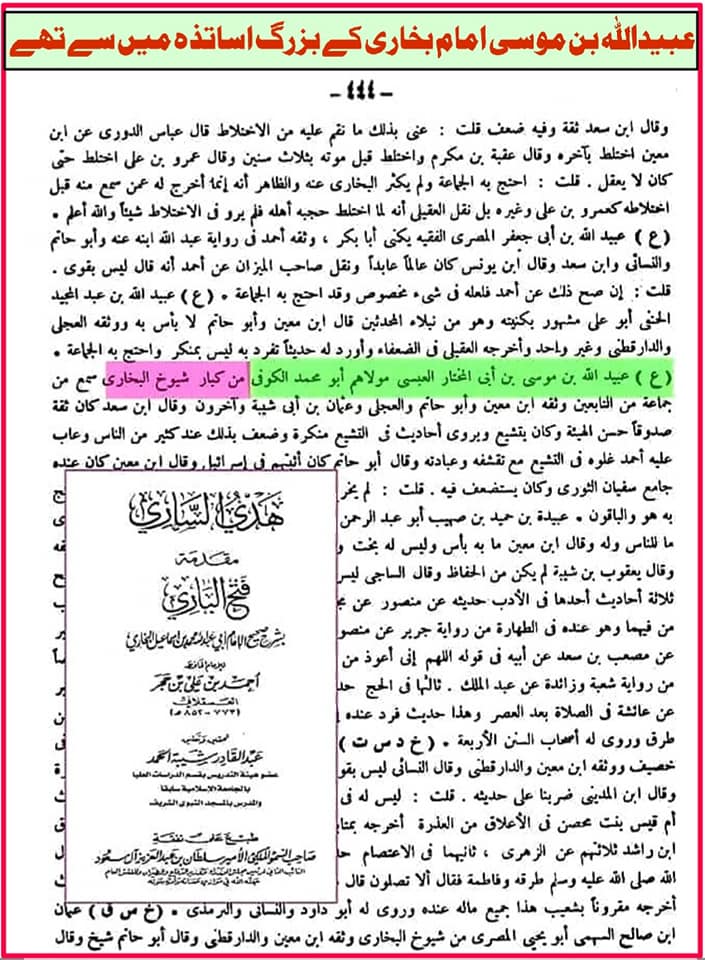 عبیداللہ بن موسی امام بخاری کے بزرگ اساتذہ میں سے تھے
- ٤٤٤ -
وقال ابن سعد ثقة وفيه ضعف قلت : عنى بذلك ما نقم عليه من الاختلاط قال عباس الدورى عن ابن
معين اختلط بآخره وقال عقبة بن مكرم واختلط قبل موته بثلاث سنين وقال عمرو بن على اختلط حتى
كان لا يعقل . قلت : احتج به الجماعة ولم يكثر البخارى عنه والظاهر أنه إنما أخرج له عمن سمع منه قبل
اختلاطه كعمرو بن على وغيره بل نقل العقيلى أنه لما اختلط حجبه أهله فلم يرو فى الاختلاط شيئاً والله أعلم .
( ع ) عبيد الله بن أبى جعفر المصرى الفقيه يكنى أبا بكر ، وثقه أحمد فى رواية عبد الله ابنه عنه وأبو حاتم
والنسائى وابن سعد وقال ابن يونس كان عالماً عابداً ونقل صاحب الميزان عن أحمد أنه قال ليس بقوى .
قلت : إن صح ذلك عن أحمد فلعله فى شىء مخصوص وقد احتج به الجماعة . ( ع ) عبيد الله بن عبد المجيد
الحنفى أبو على مشهور بكنيته وهو من نبلاء المحدثين قال ابن معين وأبو حاتم لا بأس به ووثقه العجلى
والدارقطنى وغير واحد وأخرجه العقيلى فى الضعفاء وأورد له حديثاً تفرد به ليس بمنكر واحتج به الجماعة .
( ع ) عبيد الله بن موسى بن أبى المختار العبسى مولاهم أبو محمد الكوفى من كبار شيوخ البخارى سمع من
جماعة من التابعين وثقه ابن معين وأبو حاتم والعجلى وعثمان بن أبى شيبة وآخرون وقال ابن سعد كان ثقة
صدوقاً حسن الهيئة وكان يتشيع ويروى أحاديث فى التشيع منكرة وضعف بذلك عند كثير من الناس وعاب
عليه أحمد غلوه فى التشيع مع تقشفه وعبادته وقال أبو حاتم كان أثبتهم فى إسرائيل وقال ابن معين كان عنده
جامع سفيان الثورى وكان يستضعف فيه . قلت : لم يخر
به هو والباقون . عبيدة بن حميد بن صهيب أبو عبد الرحمن
ما للناس وله وقال ابن معين ما به بأس وليس له بخت و
وقال يعقوب بن شيبة لم يكن من الحفاظ وقال الساجى ليس
ثلاثة أحاديث أحدها فى الأدب حديثه عن منصور عن مج
من فيهما وهو عنده فى الطهارة من رواية جرير عن منصو
عن مصعب بن سعد عن أبيه فى قوله اللهم إنى أعوذ من
من رواية شعبة وزائدة عن عبد الملك . ثالثها فى الحج حد
عن عائشة فى الصلاة بعد العصر وهذا حديث فرد عنده
طرق وروى له أصحاب السنن الأربعة . ( خ د س ت )
خصيف ووثقه ابن معين والدارقطنى وقال النسائى ليس بقو
وقال ابن المدينى ضربنا على حديثه . قلت : ليس له فى
أم قيس بنت محصن فى الأعلاق من العذرة أخرجه بمتابع
ابن راشد ثلاثتهم عن الزهرى ، ثانيهما فى الاعتصام حد
الله صلى الله عليه وسلم طرقه وفاطمة فقال ألا تصلون قال
أخرجه مقروناً بشعيب هذا جميع ماله عنده وروى له أبو داود والنسائى والترمذى . ( خ س ق ) عثمان
ابن صالح السهمى أبو يحيى المصرى من شيوخ البخارى وثقه ابن معين والدارقطنى وقال أبو حاتم شيخ وقال
هدي الساري
مقدمة
فتح الباري
بشرح صحيح الإمام أبي عبد الله محمد بن إسماعيل البخاري
للإمام الحافظ
أحمد بن علي بن حجر
العسقلاني
( ٧٧٣ - ٨٥٢ هـ )
عبد القادر شيبة الحمد
عضو هيئة التدريس بقسم الدراسات العليا
بالجامعة الإسلامية سابقا
والمدرس بالمسجد النبوي الشريف
طبع على نفقة
صاحب السمو الملكي الأمير سلطان بن عبد العزيز آل سعود